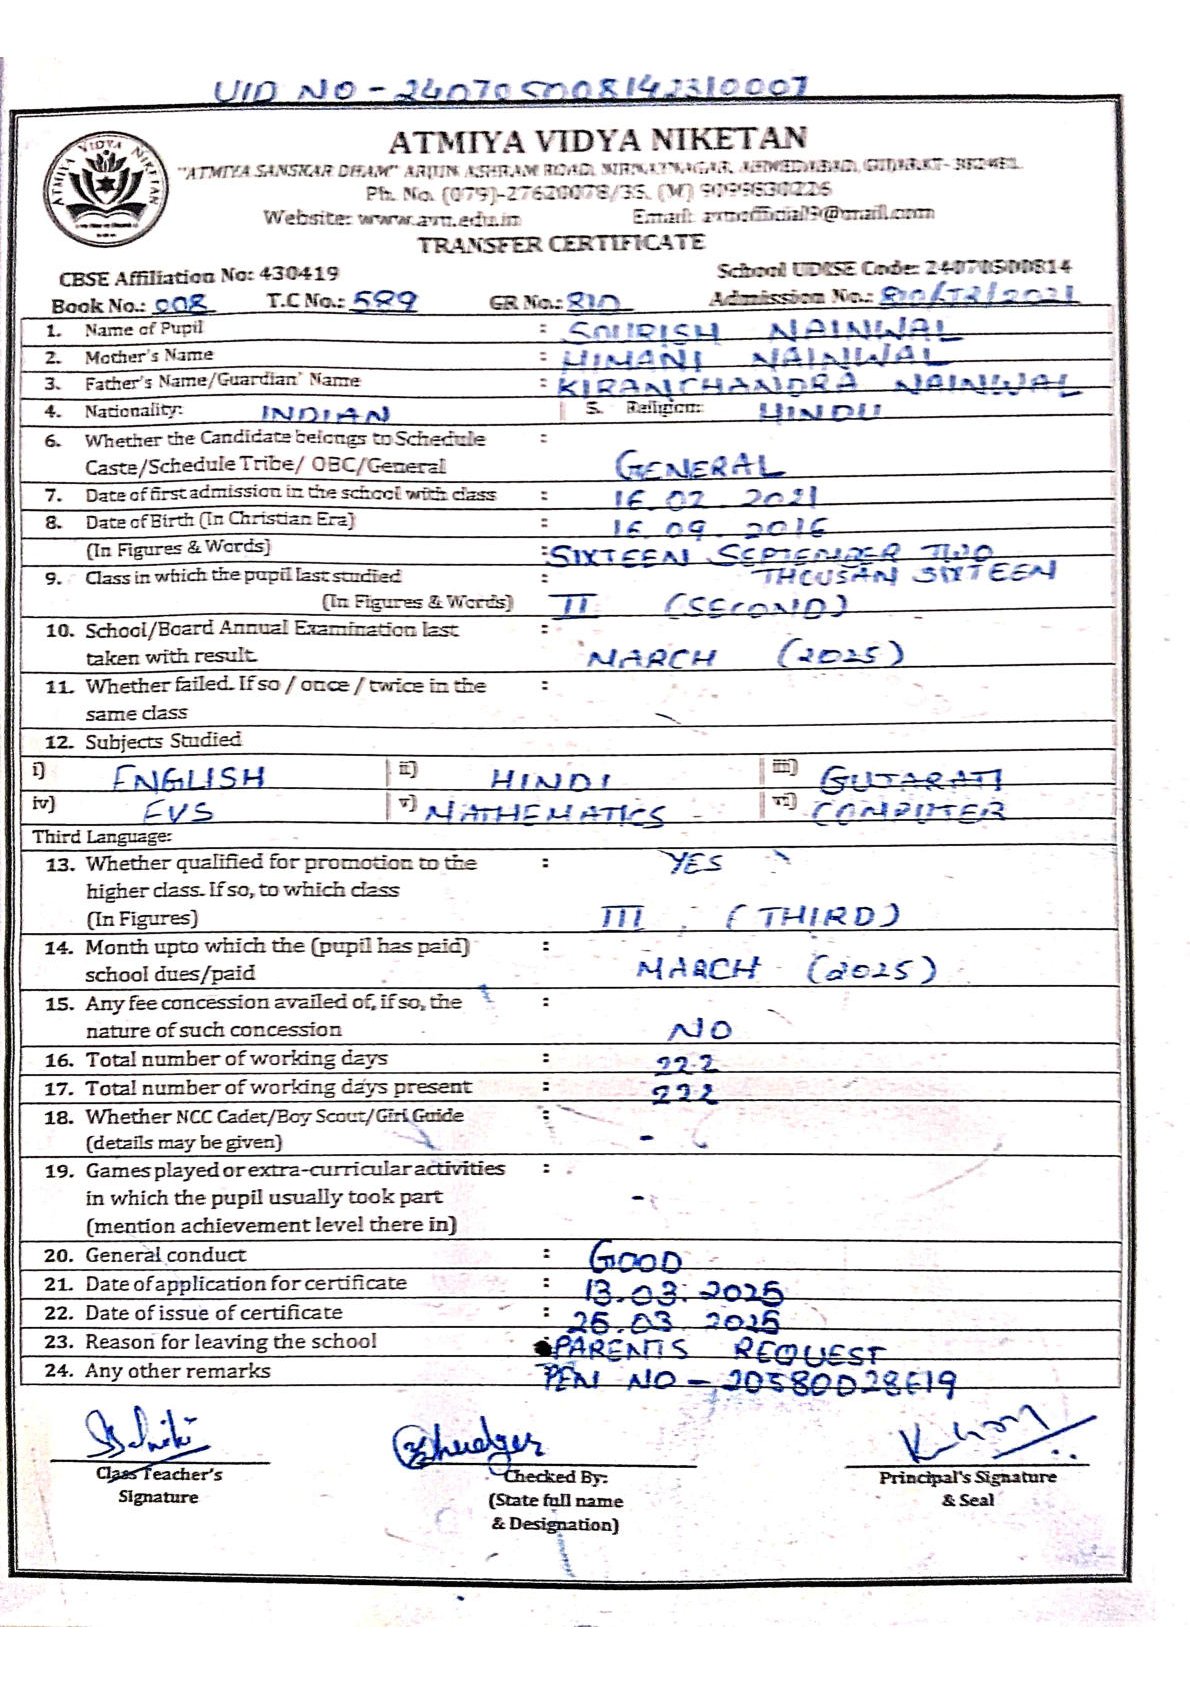 UID NO - 240705008142310007
ATMIYA VIDYA NIKETAN
"ATMIYA SANSKAR DHAM" ARJUN ASHRAM ROAD, NIRNAYNAGAR, AHMEDABAD, GUJARAT- 382481.
Ph. No. (079)-27620078/35, (M) 9099830226
Website: www.avn.edu.in Email: avnofficial9@mail.com
TRANSFER CERTIFICATE
CBSE Affiliation No: 430419 School UDISE Code: 24070500814
Book No.: 008 T.C No.: 589 GR No.: 810 Admission No.: 810/ /2021
1. Name of Pupil : SOURISH NAINWAL
2. Mother's Name : HIMANI NAINWAL
3. Father's Name/Guardian' Name : KIRANCHANDRA NAINWAL
4. Nationality: INDIAN 5. Religion: HINDU
6. Whether the Candidate belongs to Schedule :
Caste/Schedule Tribe/ OBC/General GENERAL
7. Date of first admission in the school with class : 16.02.2021
8. Date of Birth (In Christian Era) : 16.09.2016
(In Figures & Words) : SIXTEEN SEPTEMBER TWO
9. Class in which the pupil last studied : THOUSAN SIXTEEN
(In Figures & Words) II (SECOND)
10. School/Board Annual Examination last :
taken with result. MARCH (2025)
11. Whether failed. If so / once / twice in the :
same class
12. Subjects Studied
i) ENGLISH ii) HINDI iii) GUJARATI
iv) EVS v) MATHEMATICS vi) COMPUTER
Third Language:
13. Whether qualified for promotion to the : YES
higher class. If so, to which class
(In Figures) III (THIRD)
14. Month upto which the (pupil has paid) :
school dues/paid MARCH (2025)
15. Any fee concession availed of, if so, the :
nature of such concession NO
16. Total number of working days : 222
17. Total number of working days present : 222
18. Whether NCC Cadet/Boy Scout/Girl Guide :
(details may be given) -
19. Games played or extra-curricular activities :
in which the pupil usually took part -
(mention achievement level there in)
20. General conduct : GOOD
21. Date of application for certificate : 13.03.2025
22. Date of issue of certificate : 26.03.2025
23. Reason for leaving the school PARENTS REQUEST
24. Any other remarks PEN NO -
Class Teacher's Checked By: Principal's Signature
Signature (State full name & Seal
& Designation)
ATMIYA VIDYA NIKETAN